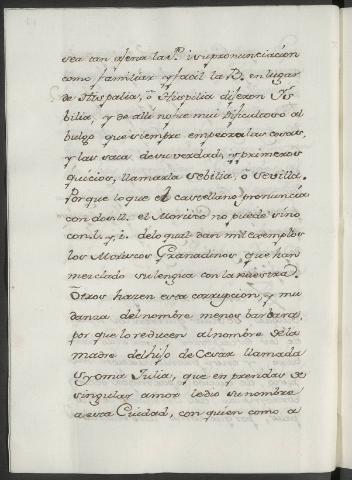 sea tan agena la P. i su pronunciacion
como familiar y facil la B. en lugar
de Hispalia, ô Hispilia dijeron His
bilia, y de alli no fue mui dificultoso al
bulgo que siempre empeora las cosas,
y las saca de su verdad, y primeros
quicios, llamarla Sebilia, ô Sevilla.
Porque lo que el castellano pronuncia
con dos ll. el Morisco no puede sino
con l. y i. de lo qual dan mil exemplos
los Moriscos Granadinos, que han
mezclado su lengua con la nuestra.
Otros hazen esta corrupcion, y mu
danza del nombre menos barbara,
porque lo reducen al nombre de la
madre del hijo de Cesar llamada
Julia, que en prendas de
singular amor le dio su nombre
a esta Ciudad, con quien como a